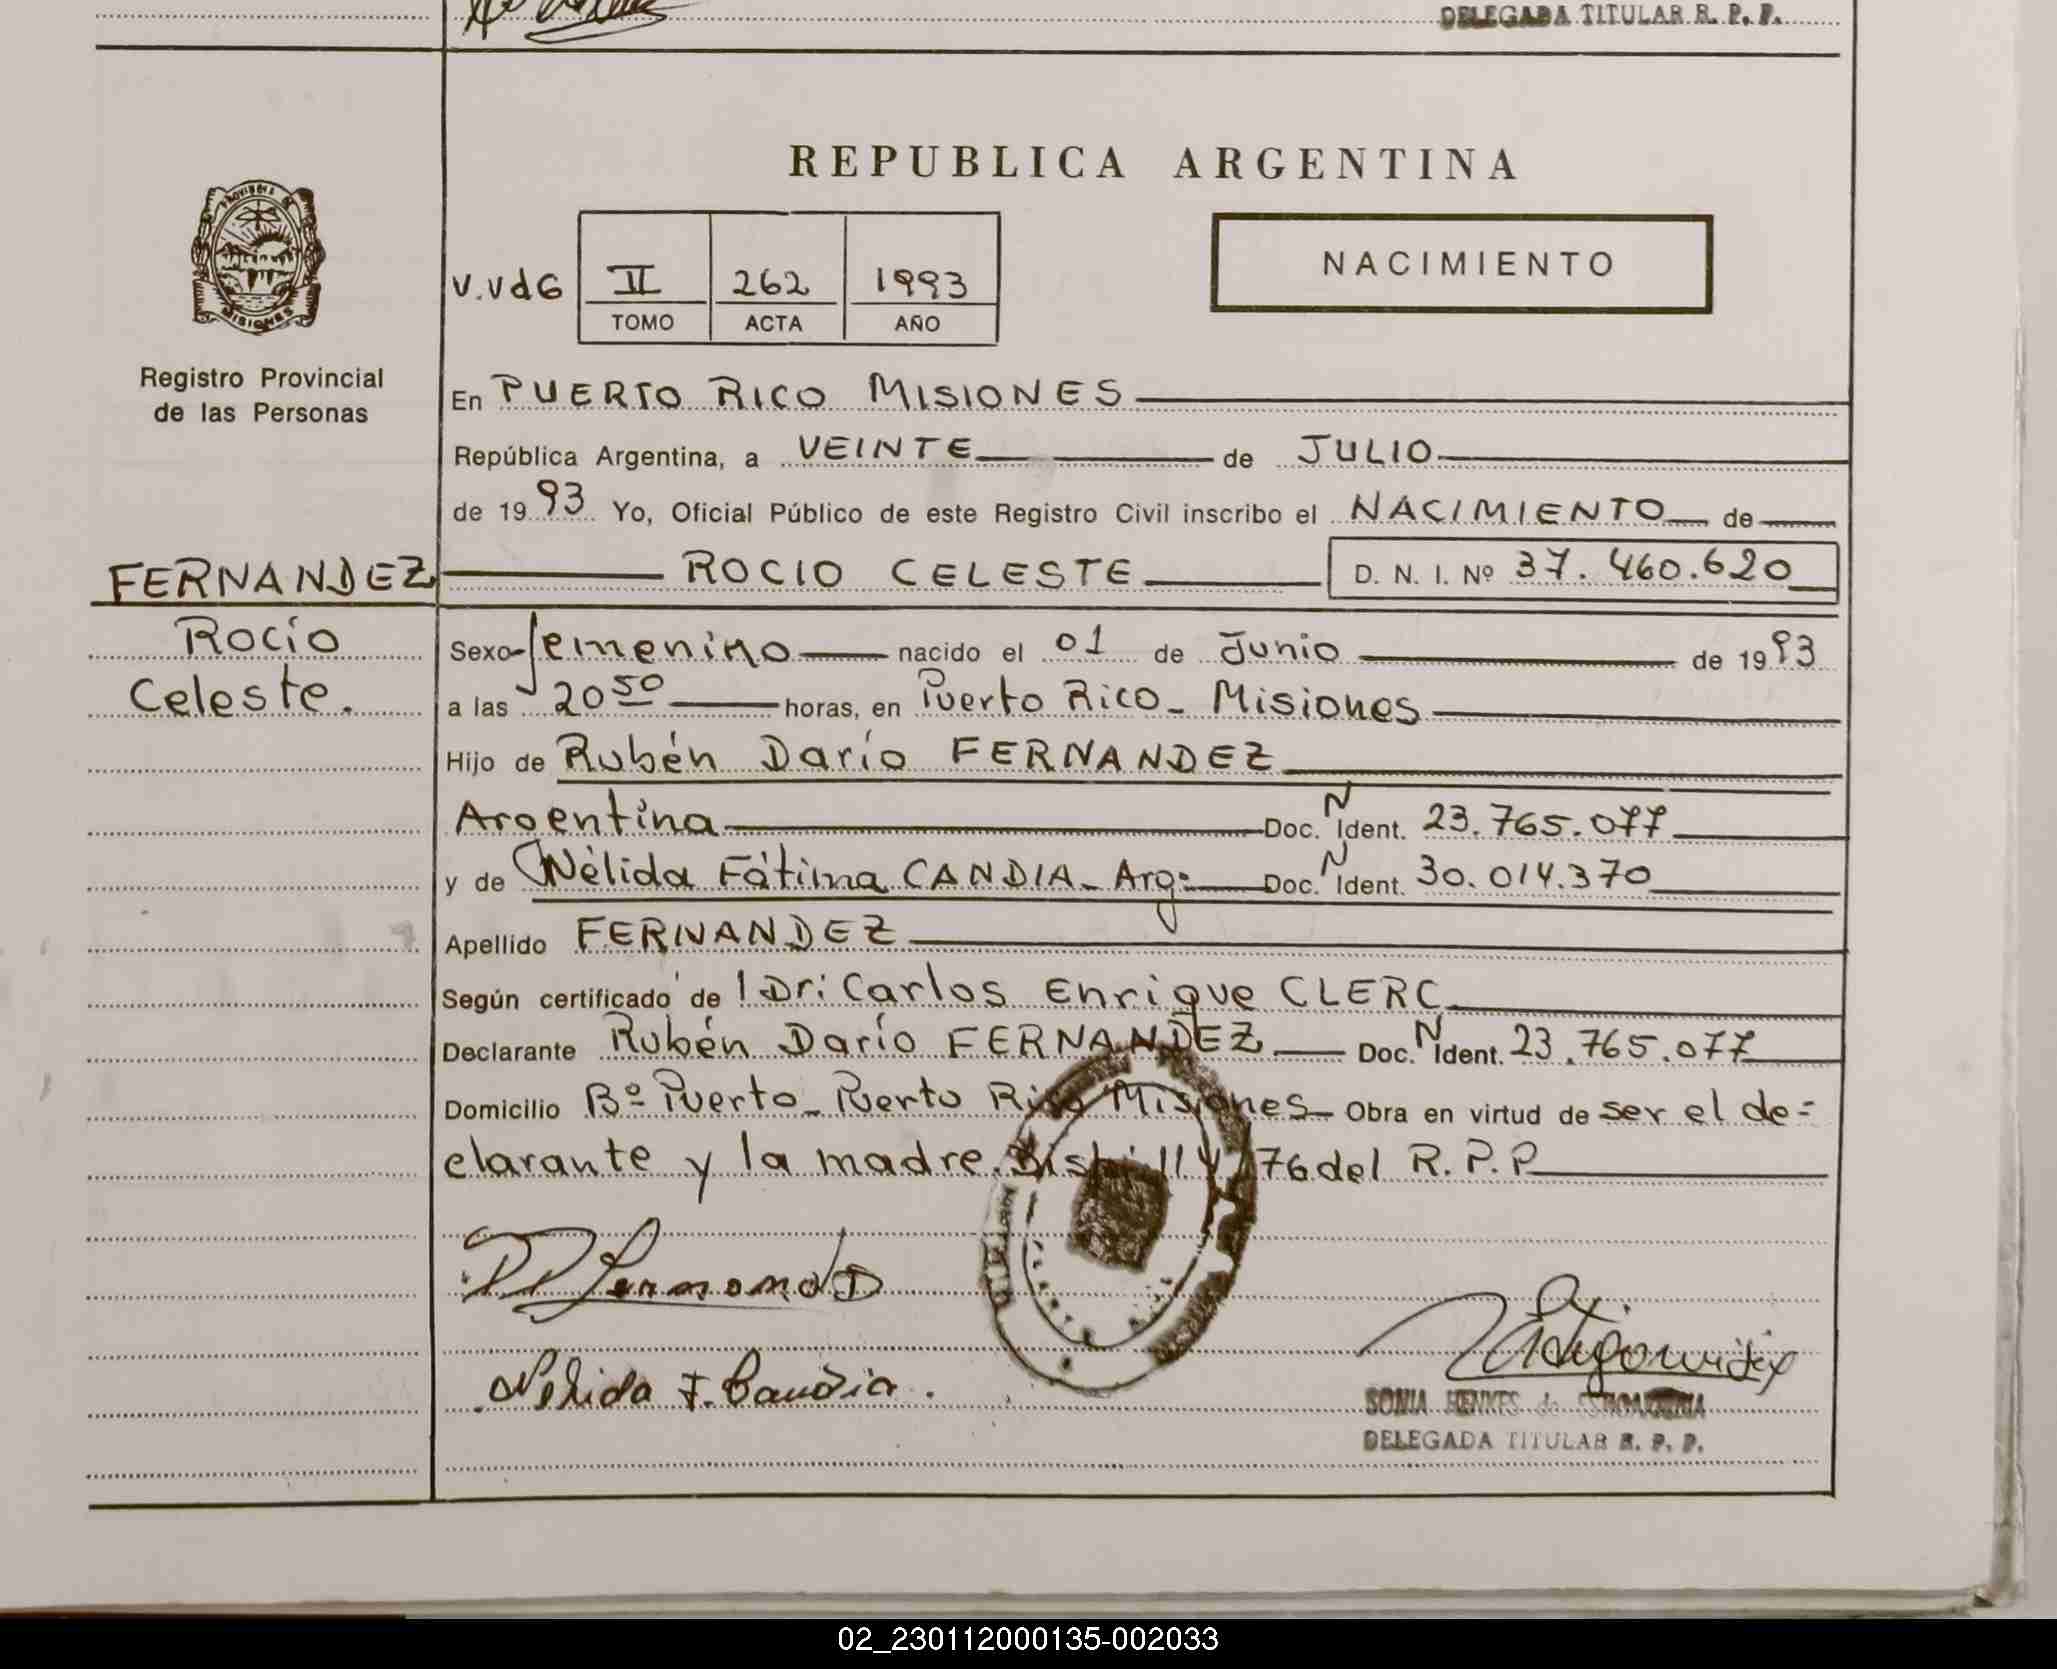 DELEGADA TITULAR R. P. P.
PROVINCIA DE
MISIONES
Registro Provincial
de las Personas
REPUBLICA ARGENTINA
V.VdG II 262 1993
TOMO ACTA AÑO
NACIMIENTO
En PUERTO RICO MISIONES
República Argentina, a VEINTE de JULIO
de 1993 Yo, Oficial Público de este Registro Civil inscribo el NACIMIENTO de
FERNANDEZ ROCIO CELESTE D. N. I. Nº 37.460.620
Rocío
Celeste.
Sexo femenino nacido el 01 de Junio de 1993
a las 20 50 horas, en Puerto Rico - Misiones
Hijo de Rubén Darío FERNANDEZ
Argentina Doc. N Ident. 23.765.077
y de Nélida Fátima CANDIA - Arg. Doc. N Ident. 30.014.370
Apellido FERNANDEZ
Según certificado de l Dr: Carlos Enrique CLERC
Declarante Rubén Darío FERNANDEZ Doc. N Ident. 23.765.077
Domicilio Bº Puerto - Puerto Rico Misiones - Obra en virtud de ser el de=
clarante y la madre. 76 del R.P.P
Nelida F. Candia.
SONIA HENKES de
DELEGADA TITULAR R. P. P.
02_230112000135-002033